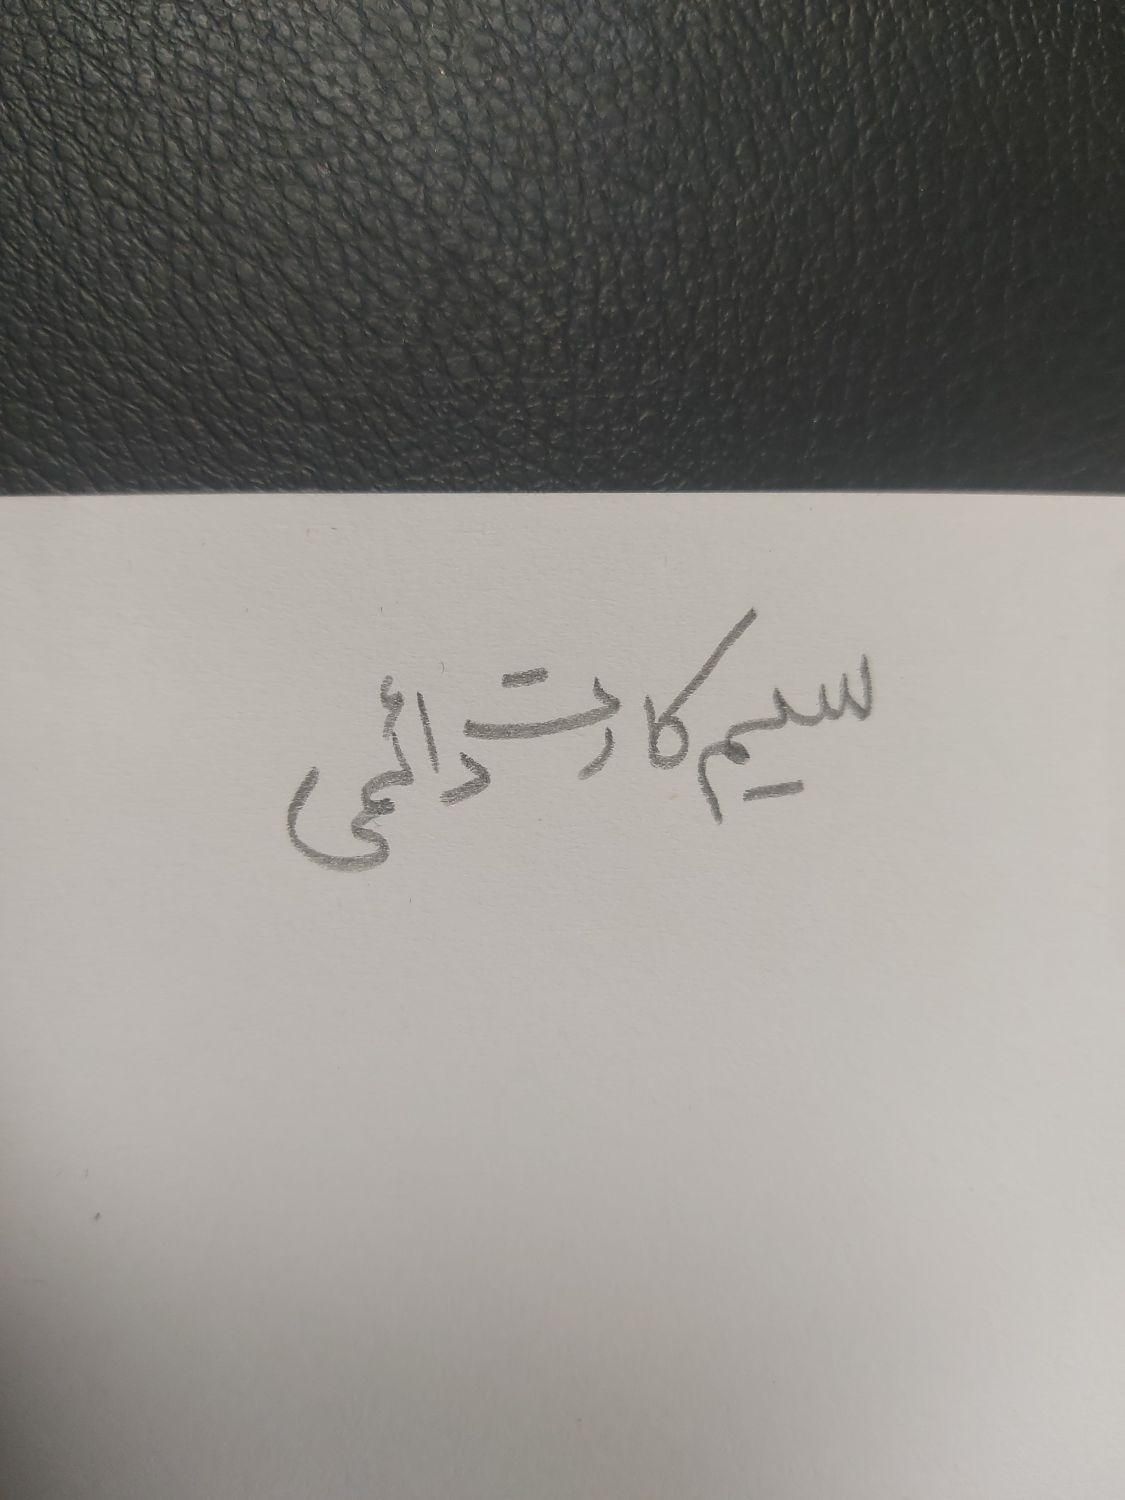 سیم کارت دائمی